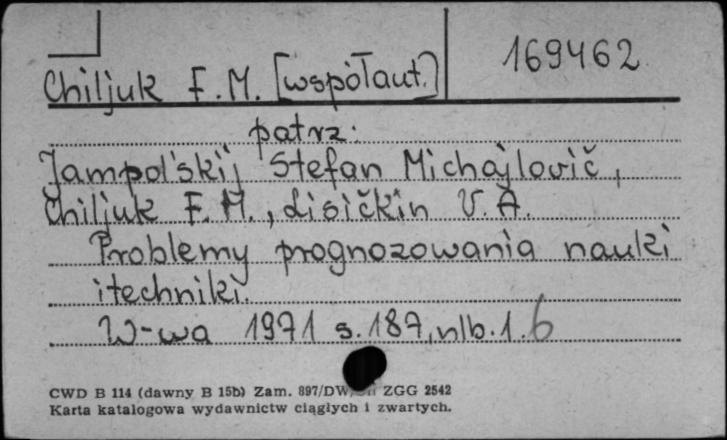 169462
Chiljuk F.M. [współaut.]
patrz:
Jampol'skij Stefan Michajlovič,
Chiljuk F.M., Lisičkin V.A.
Problemy prognozowania nauki
i techniki.
W-wa 1971 s.187, nlb.1. 6
CWD B 114 (dawny B 15b) Zam. 897/DW ZGG 2542
Karta katalogowa wydawnictw ciągłych i zwartych.